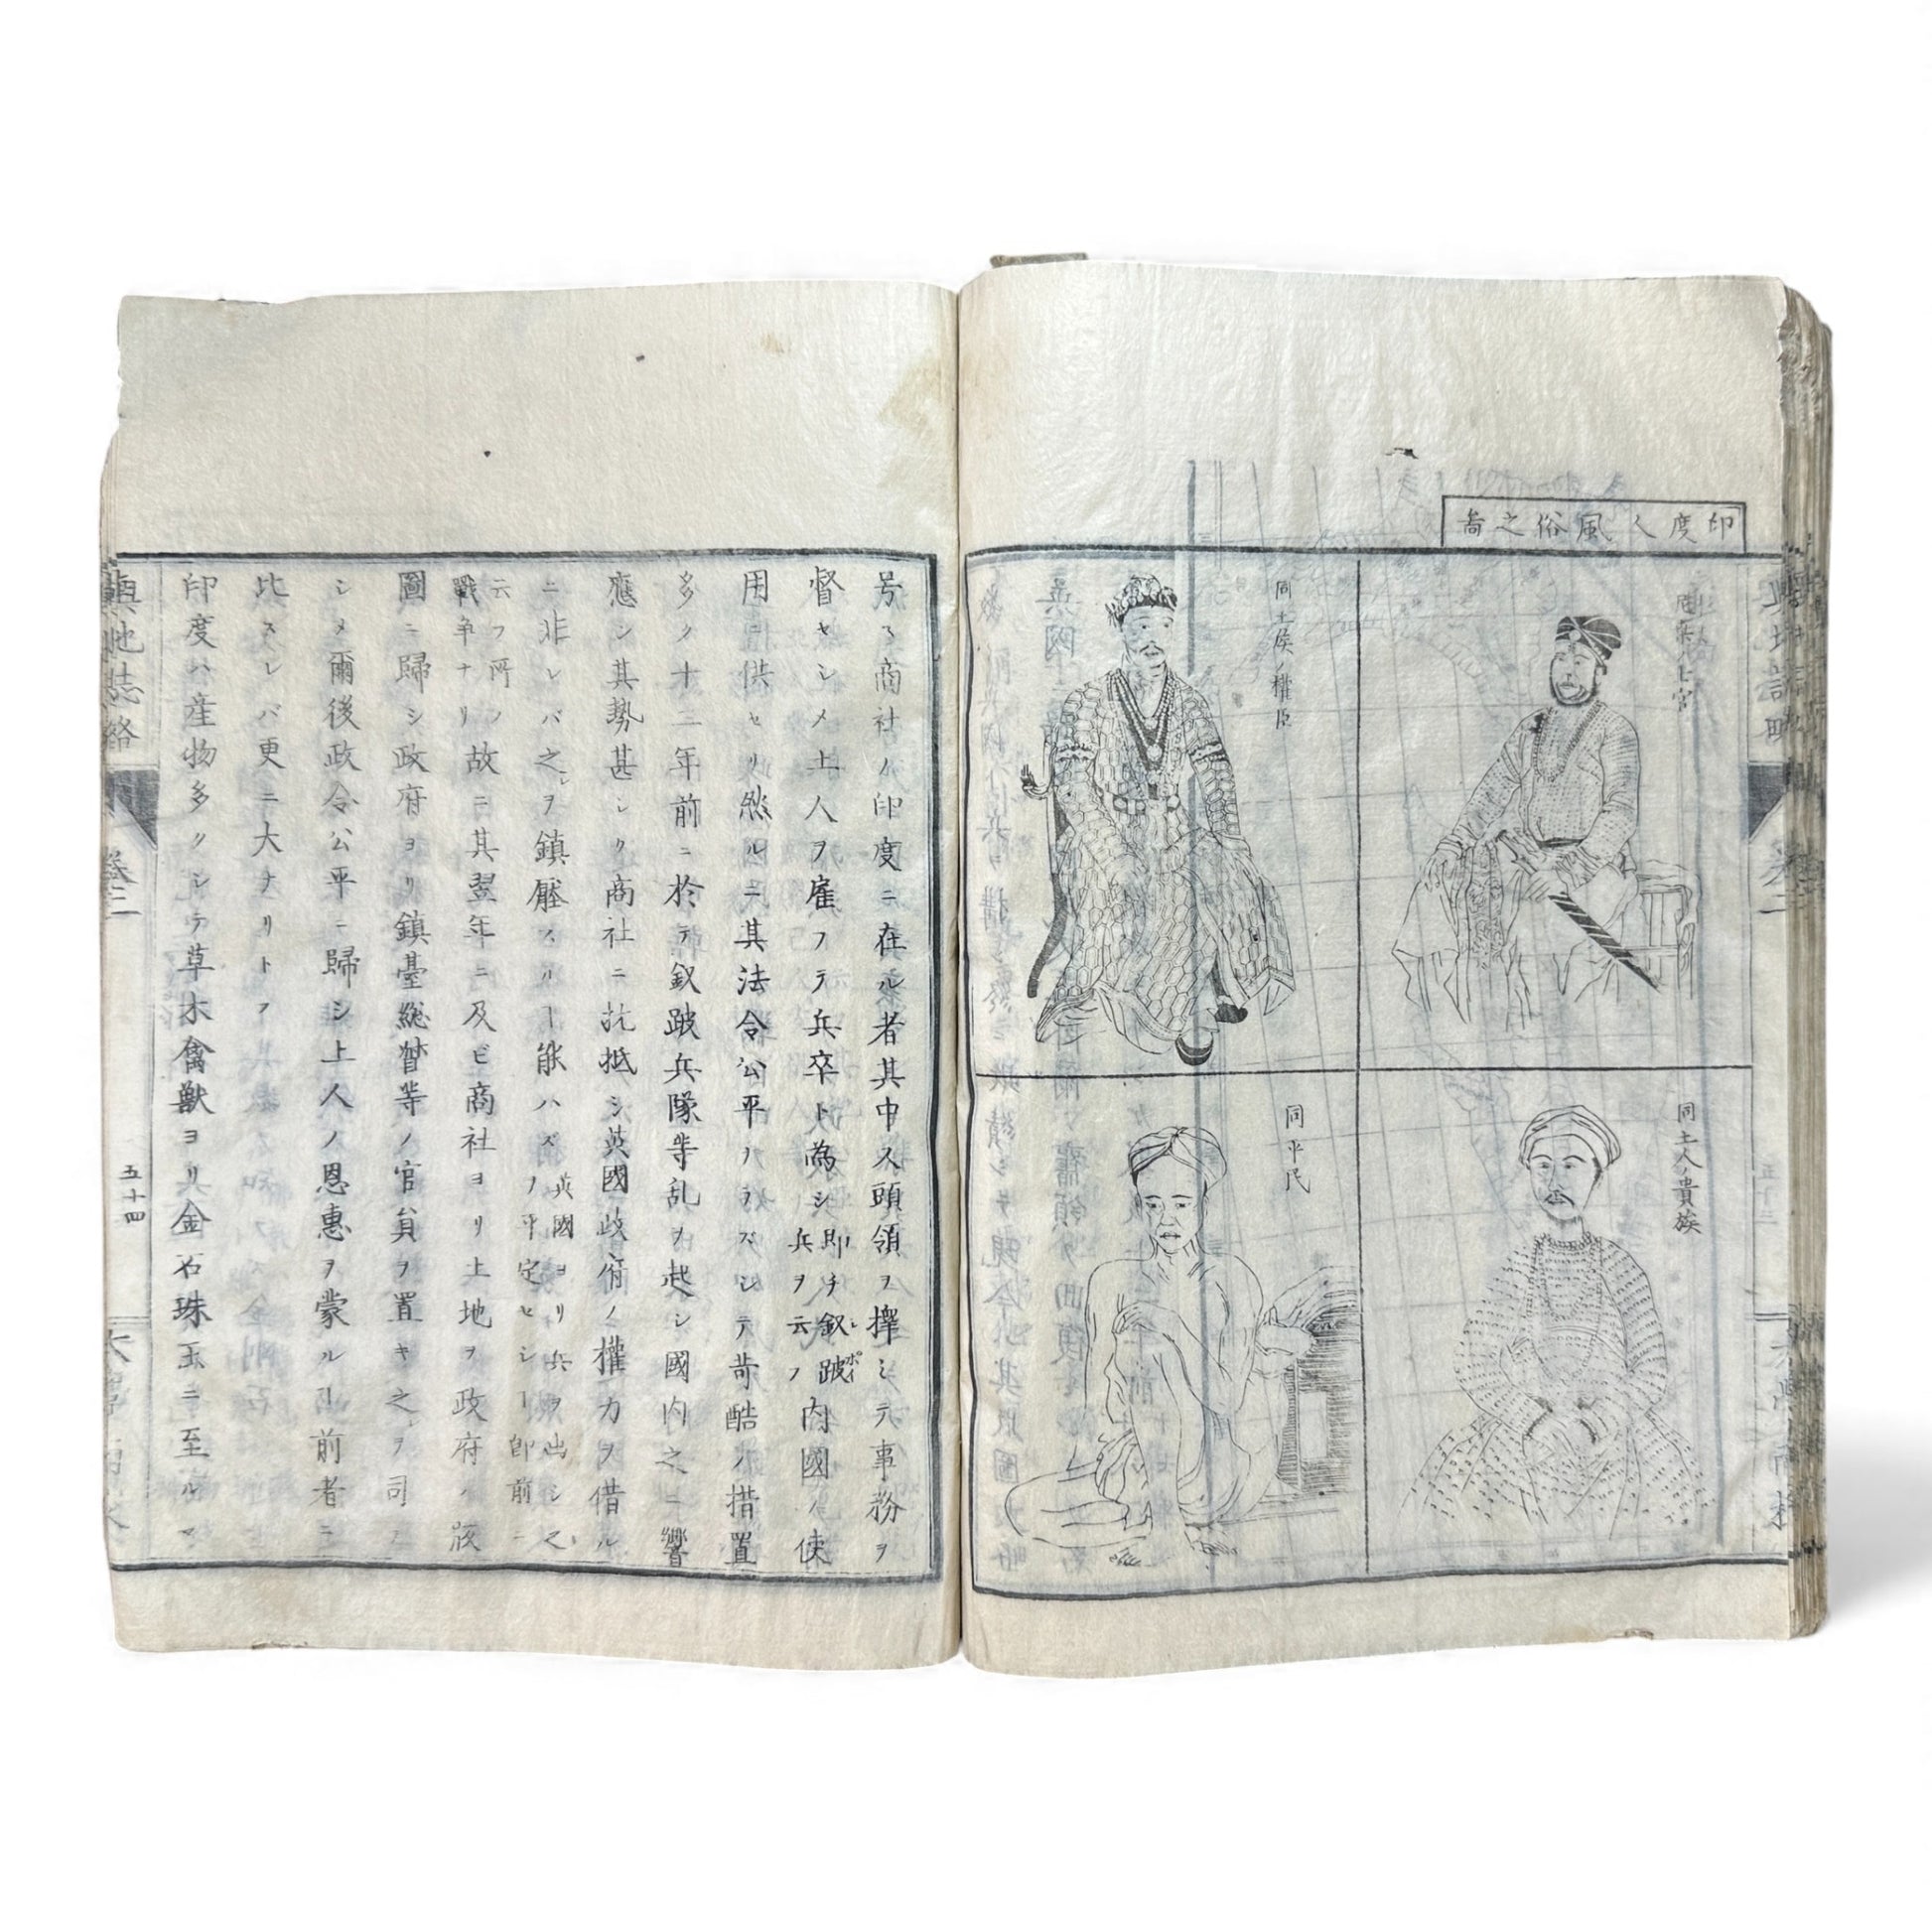 印度人風俗之啚
同兵士官
同土侯ノ權臣
同土人ノ貴族
同平民
号ス商社ノ印度ニ在ル者其中ヨリ頭領ヲ擇ミテ事務ヲ
督セシメ土人ヲ雇フテ兵卒ト為シ即チ釵跛兵ヲ云フ内國ノ使
用ニ供セリ然ルニ其法令公平ナラズシテ苛酷ノ措置
多ク十二年前ニ於テ釵跛兵隊等乱ヲ起シ國内之ニ響
應シ其勢甚シク商社ニ抗抵シ英國政府ノ權力ヲ借ル
ニ非レバ之ヲ鎮壓スルヿ能ハズ英國ヨリ兵ヲ出シ之ヲ平定セシヿ即前ニ
云フ所ノ
戰争ナリ故ニ其翌年ニ及ビ商社ヨリ土地ヲ政府ノ版
圖ニ歸シ政府ヨリ鎮臺総督等ノ官員ヲ置キ之ヲ司ラ
シメ爾後政令公平ニ歸シ土人ノ恩惠ヲ蒙ルヿ前者ニ
比スレバ更ニ大ナリトフ
印度ハ産物多クシテ草木禽獣ヨリ金石珠玉ニ至ルマ
輿地誌略
卷二
五十四